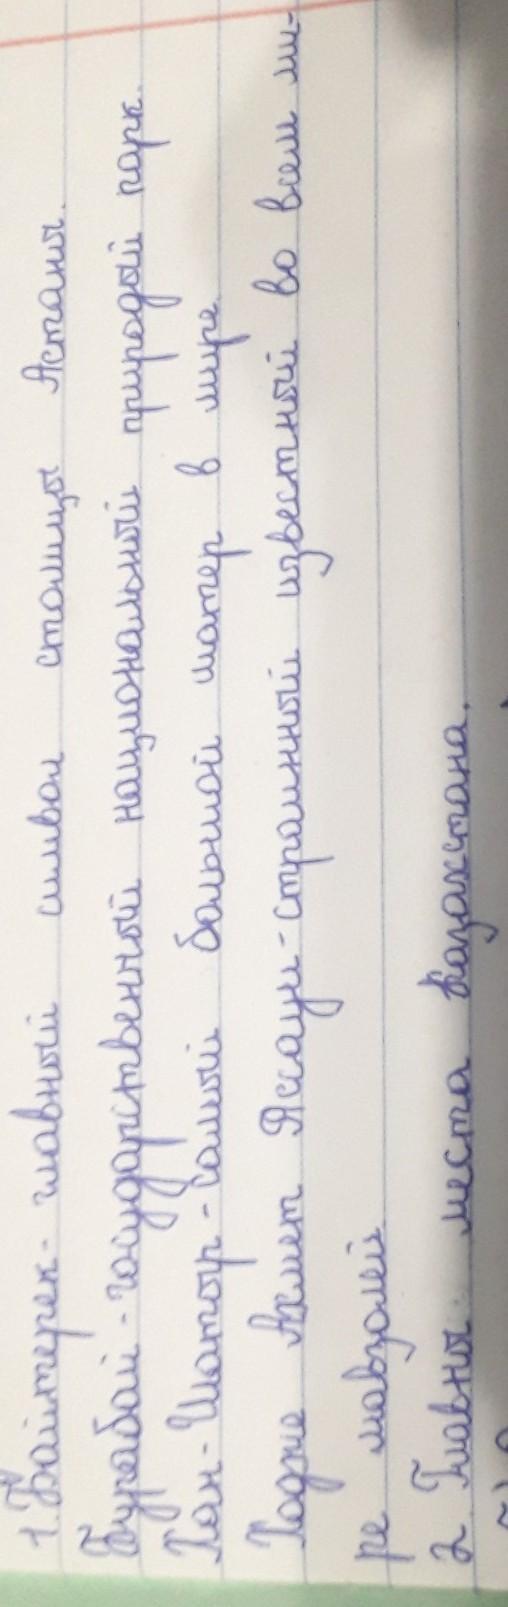 1. Байтерек - главный символ столицы Астаны.
Бурабай - государственный национальный природый парк.
Хан - Шатыр - самый большой шатер в мире
Ходже Ахмет Яссауи - странный известный во всем ми-
ре мавзолей
2 Главны места Казахстана.